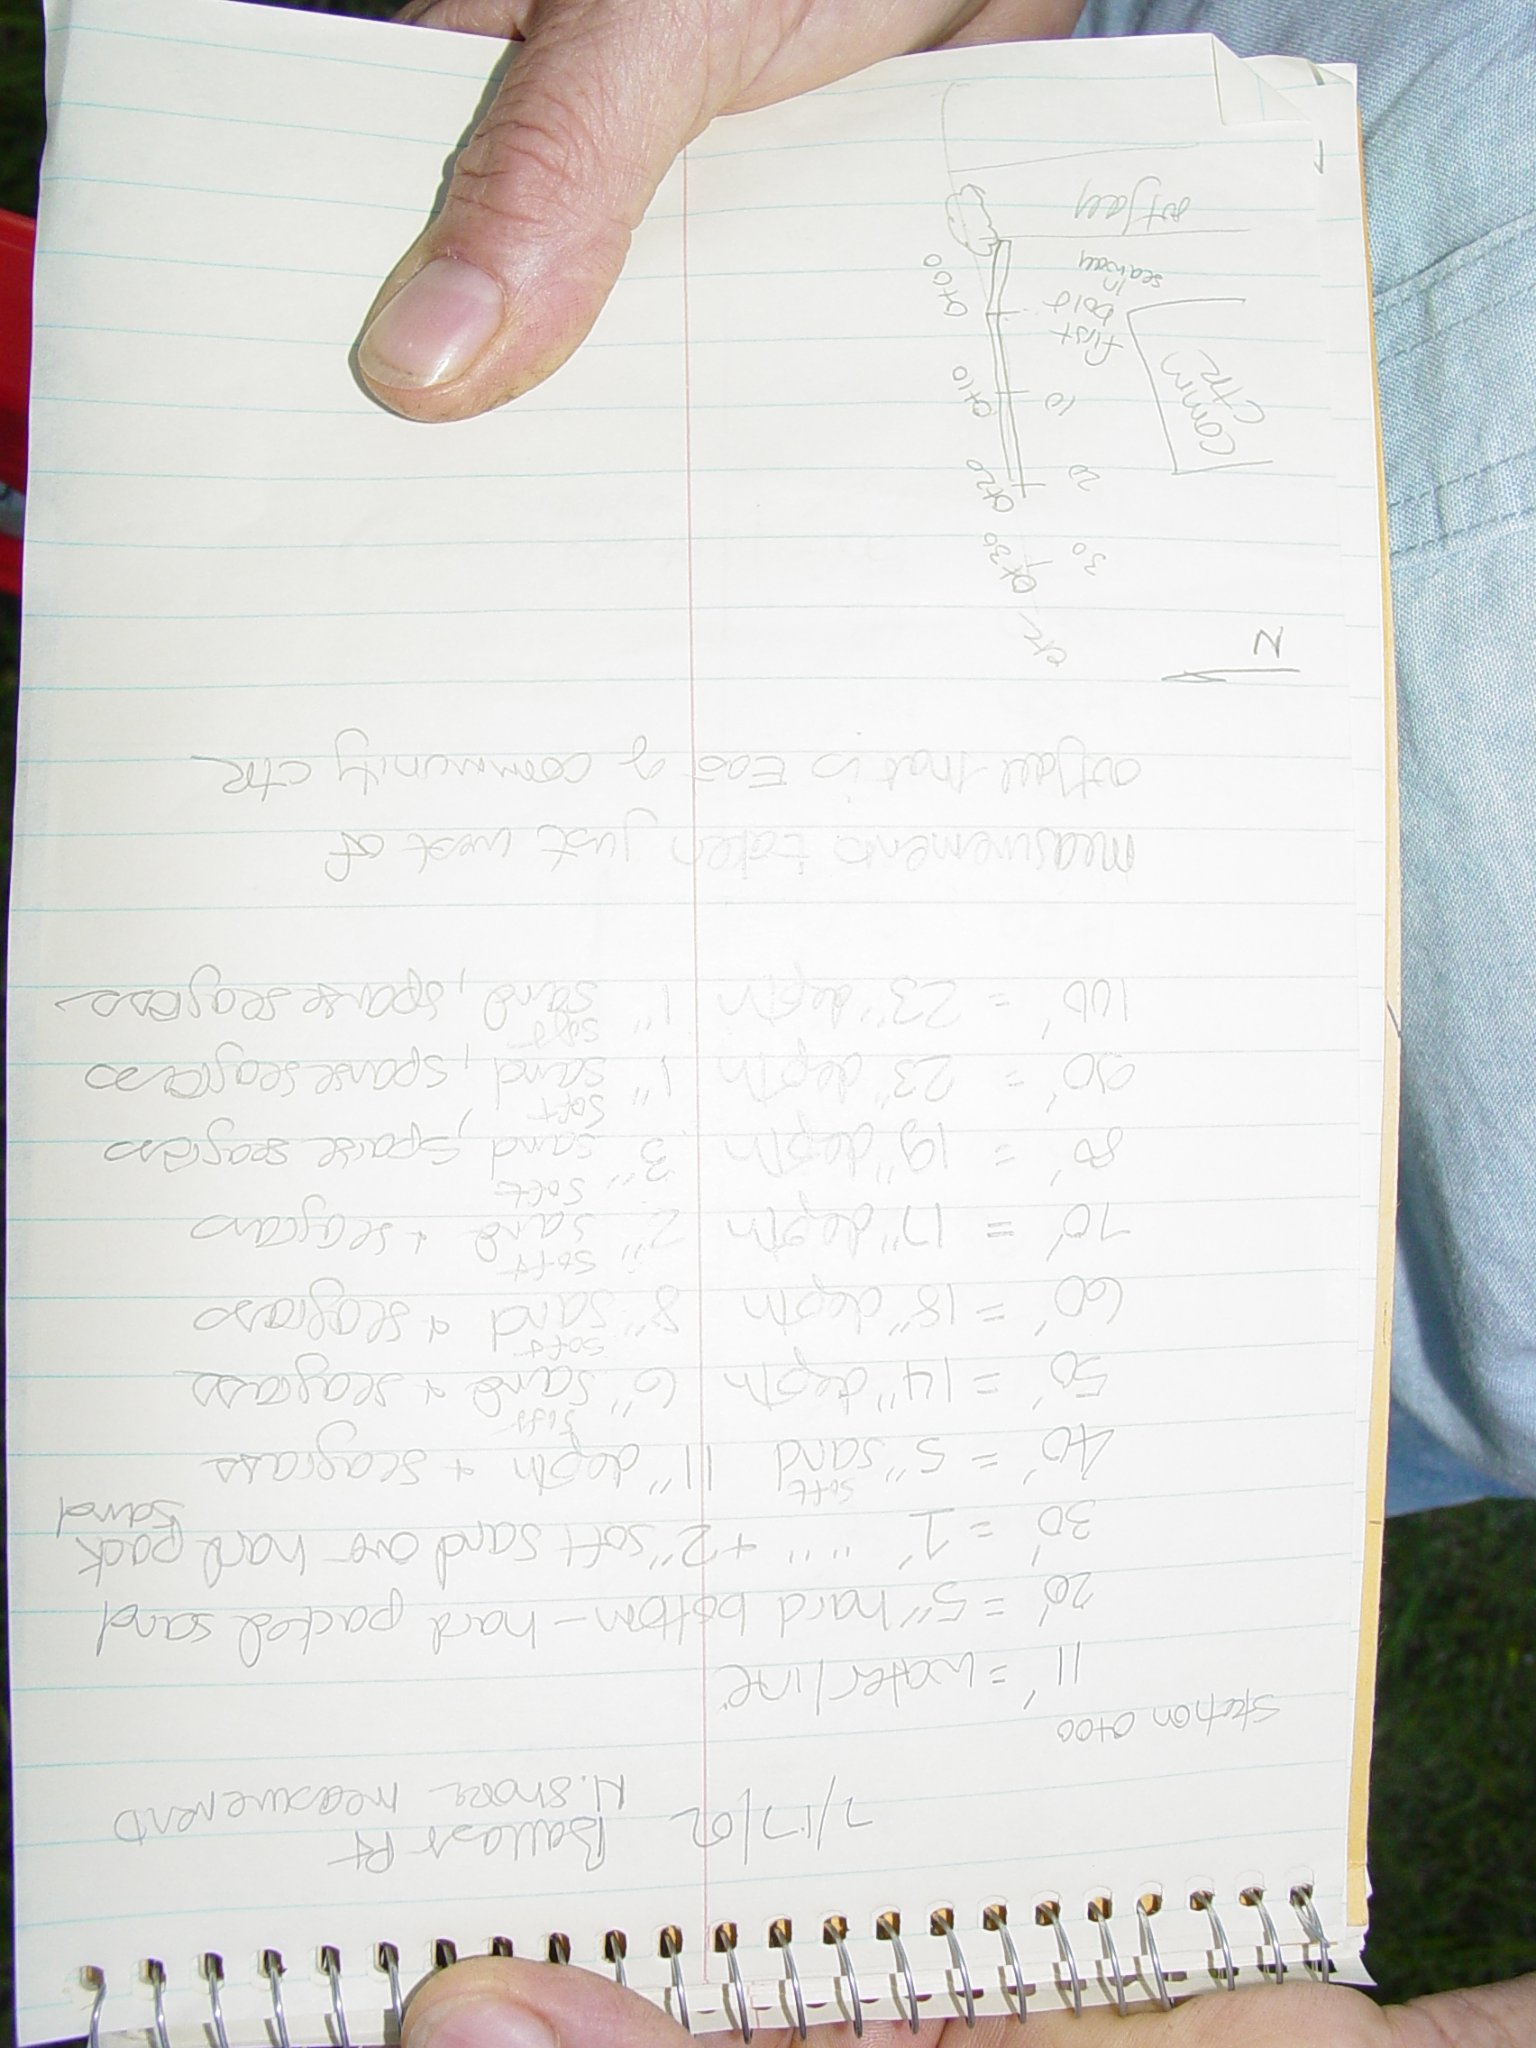 7/17/02 Ballast Pt
N. Shore measurements
Station 0+00
11' = waterline
20' = 5" hard bottom - hard packed sand
30' = 1' "" + 2" soft sand over hard pack sand
40' = 5" soft sand 11" depth + seagrass
50' = 14" depth 6" soft sand + seagrass
60' = 18" depth 8" soft sand + seagrass
70' = 17" depth 2" soft sand + seagrass
80' = 19" depth 3" soft sand, sparse seagrass
90' = 23" depth 1" soft sand, sparse seagrass
100' = 23" depth 1" soft sand, sparse seagrass
measurements taken just west of
outfall that is East of community CTR
N
etc
0+30
30
0+20
20
0+10
10
0+00
first
bold
in
seaway
Comm
CTR
outfall